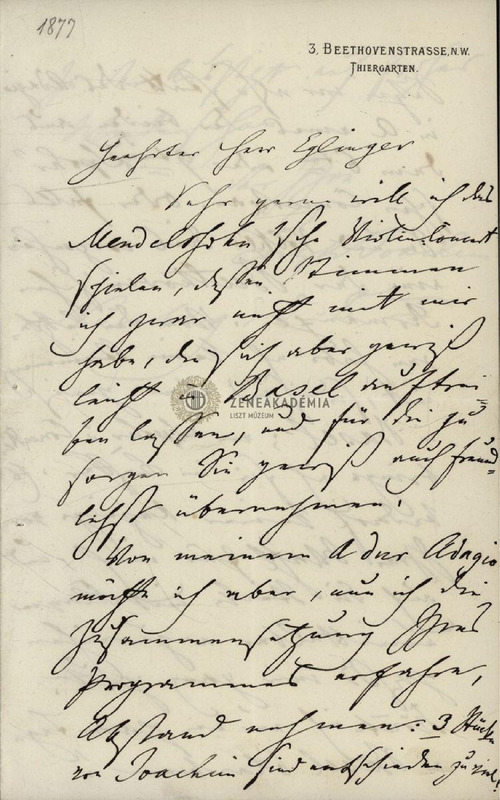 1877
3, BEETHOVENSTRASSE, N.W.
THIERGARTEN.
Geehrter Herr Eglinger
Sehr gerne will ich das
Mendelssohn'sche Violinconcert
spielen, dessen Stimmen
ich zwar nicht mit mir
habe, die sich aber gewiß
leicht in Basel auftrei=
ben lassen, und für die zu
sorgen Sie gewiß auch freund=
lichst übernehmen.
Von meinem A dur Adagio
möchte ich aber, nun ich die
Zusammensetzung Ihres
Programmes erfahre,
Abstand nehmen: 3 Stücke
von Joachim sind entschieden zu viel!
ZENEAKADÉMIA
LISZT MÚZEUM